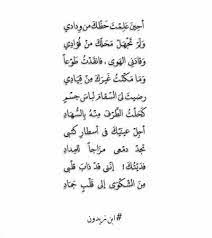 أحين علمت حظك من ودادي
ولم تجهل محلك من فؤادي
وقادني الهوى، فانقدت طوعا
وما مكنت غيرك من قيادي
رضيت لي السقام لباس جسم
كحلت الطرف منه بالسهاد
أجل عينيك في أسطار كتبي
تجد دمعي مزاجا للمداد
فديتك! إنني قد ذاب قلبي
من الشكوى إلى قلب جماد
#ابن_زيدون